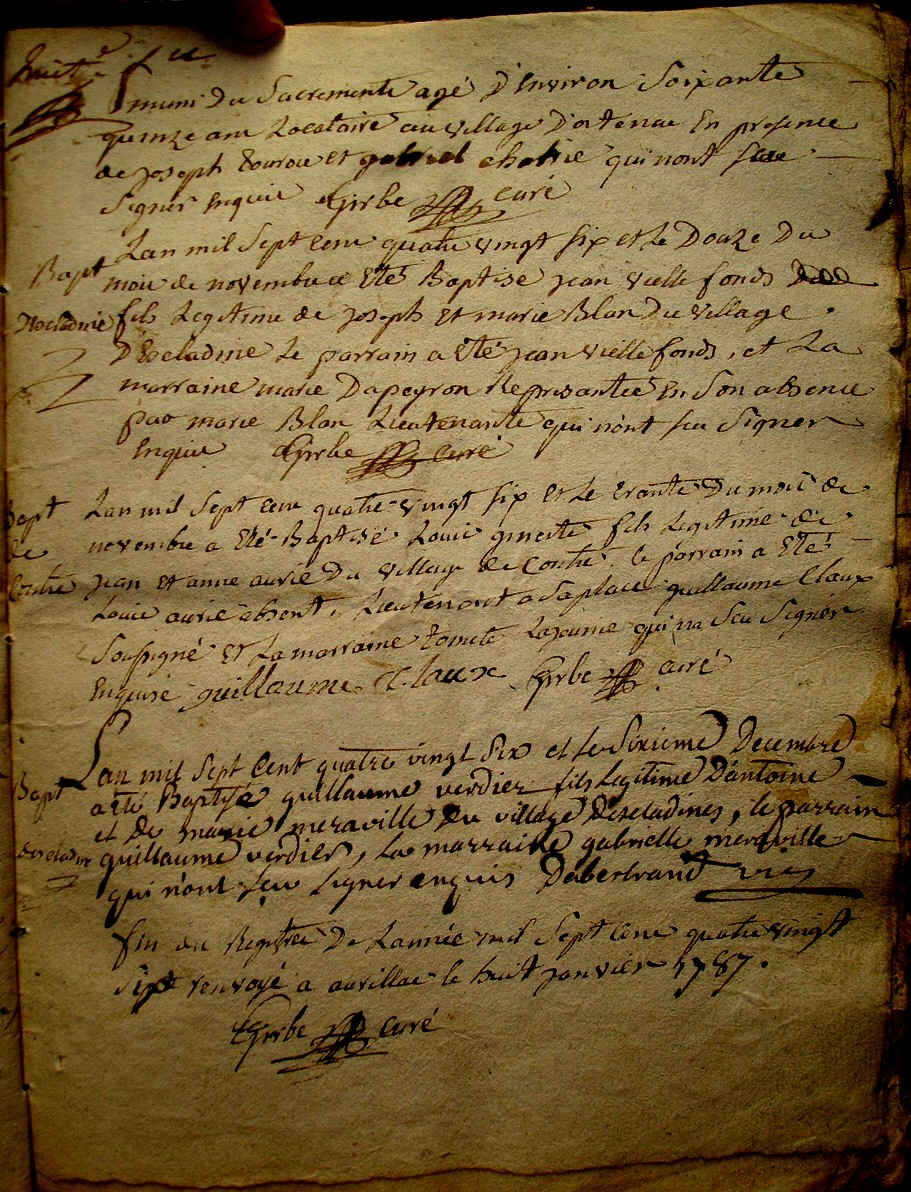 muni du Sacremente agé D'Environ Soixante
quinze ans Locataire au village D'ortenac En presence
de joseph et gabriel qui nont Sceu
Signer Enquis Girbe curé
Bapt
Lan mil Sept Cent quatre vingt Six et le Douze Du
mois de novembre a Eté Baptise jean viellefonds
fils Legitime de joseph Et marie Blan Du village
D'Escladine Le parrain a Eté jean viellefonds, et La
marraine marie Dapeyron Représantée En Son absence
par marie Blan Lieutenante qui nont sceu Signer
Enquis Girbe curé
Bapt
de
Contre
Lan mil Sept Cent quatre vingt Six et Le trante Du mois de
novembre a Eté Baptisé Louis fils Legitime de
jean Et anne aurie Du village de Contre. le parrain a Eté
Louis aurie absent, Lieutenant a Saplace guillaume Claux
Soussigné Et La marraine qui na Sceu Signér
Enquise guillaume Claux Girbe curé
Bapt
descladine
Lan mil Sept Cent quatre vingt Six et le Sixieme Decembre
a été Baptisé guillaume verdier fils legitime D'antoine
et de marie meraville du village descladines, le parrain
guillaume verdier, la marraine gabrielle meraville
qui n'ont sçu signer enquis Debertrand vic
fin du Registre De Lannée mil Sept Cent quatre vingt
Six renvoyé a aurillac le huit janvier 1787.
Girbe curé